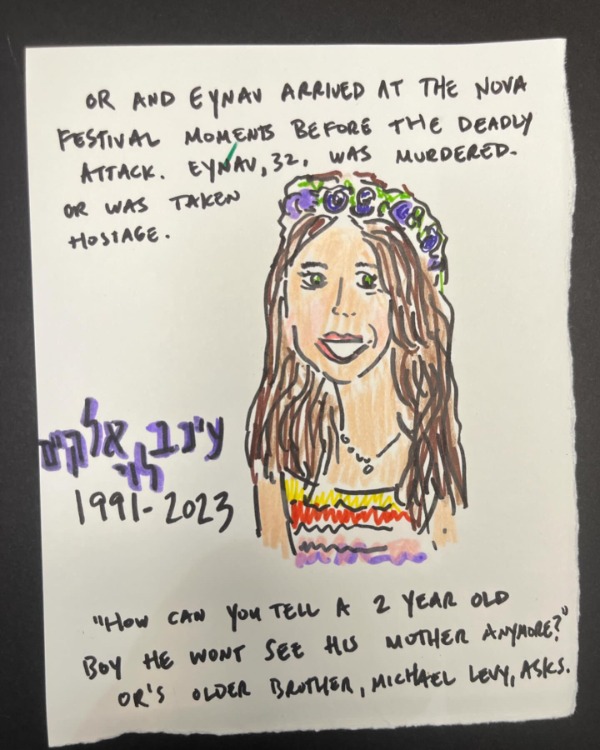 OR AND EYNAV ARRIVED AT THE NOVA
FESTIVAL MOMENTS BEFORE THE DEADLY
ATTACK. EYNAV, 32, WAS MURDERED.
OR WAS TAKEN
HOSTAGE.
עינב אלקים
לוי
1991-2023
"HOW CAN YOU TELL A 2 YEAR OLD
BOY HE WONT SEE HIS MOTHER ANYMORE?"
OR'S OLDER BROTHER, MICHAEL LEVY, ASKS.